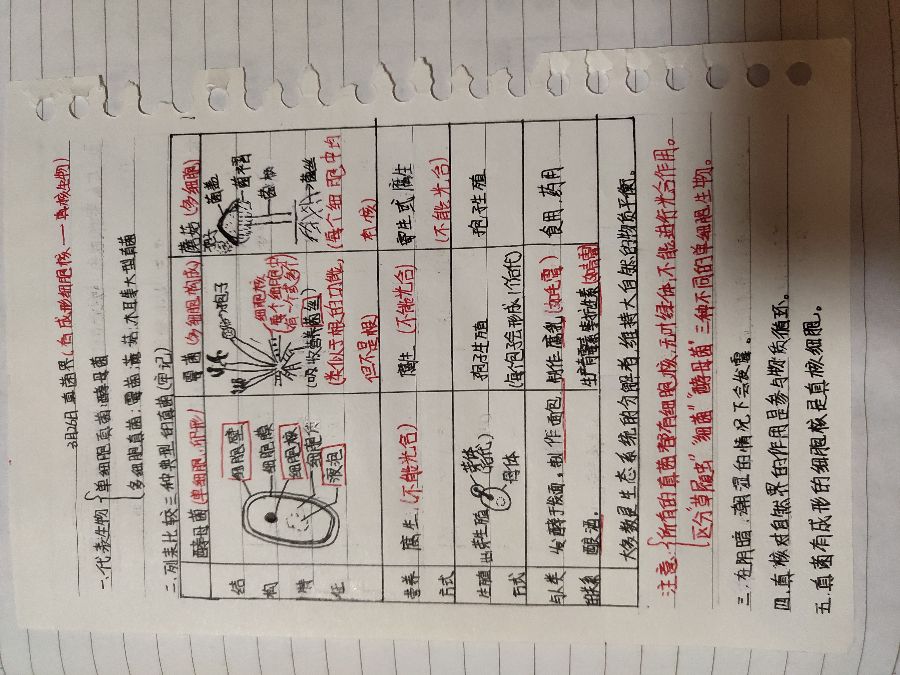 3月26日 真菌界(有成形细胞核——真核生物)
一.代表生物{单细胞真菌:酵母菌
多细胞真菌:霉菌,蘑菇,木耳等大型真菌
二.列表比较三种典型的真菌(牢记)
酵母菌(单细胞,卵形) 霉菌(多细胞构成) 蘑菇(多细胞)
结构特征
细胞壁
细胞膜
细胞核
细胞质
液泡
孢子
细胞核
(每个细胞中
吸收营养菌丝
(类似于根的功能,
但不是根)
菌盖
孢子
菌褶
菌柄
菌丝
(每个细胞中均
有核)
营养方式 腐生(不能光合) 腐生(不能光合) 寄生或腐生
(不能光合)
生殖方式 出芽生殖 母体 孢子生殖
(每包子会形成1个后代) 孢子生殖
与人类的关系 发酵于发面,制作面包,
酿酒。 制作腐乳(如毛霉)
生产青霉素等抗生素(如青霉) 食用、药用
大多数是生态系统的分解者,维持大自然的物质平衡。
注意:{所有的真菌都有细胞核,无叶绿体,不能进行光合作用。
区分“草履虫”“细菌”“酵母菌”三种不同的单细胞生物。
三.在阴暗,潮湿的情况下会发霉。
四.真核对自然界的作用是参与物质循环。
五.真菌有成形的细胞核是真核细胞。